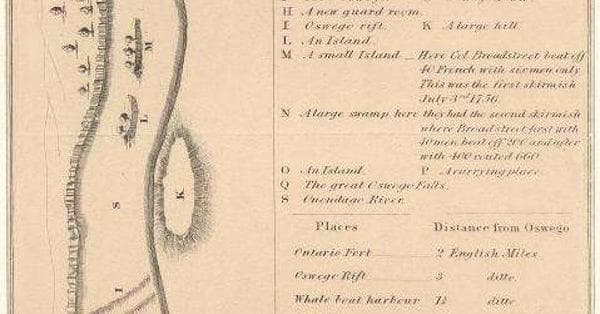 H A new guard room.
I Oswego rift. K A large hill
L An Island.
M A small Island _ Here Col Broadstreet beat off
40 French with six men only
This was the first skirmish
July 3rd 1756
N A large swamp here they had the second skirmish
where Broadstreet first with
40 men beat off 200 and after
with 400 routed 660
O An Island. P A carrying place.
Q The great Oswego Falls.
S Onendage River.
Places Distance from Oswego
Ontario Fort 2 English Miles
Oswego Rift 3 ditto
Whale boat harbour 1½ ditto
M
L
K
S
I